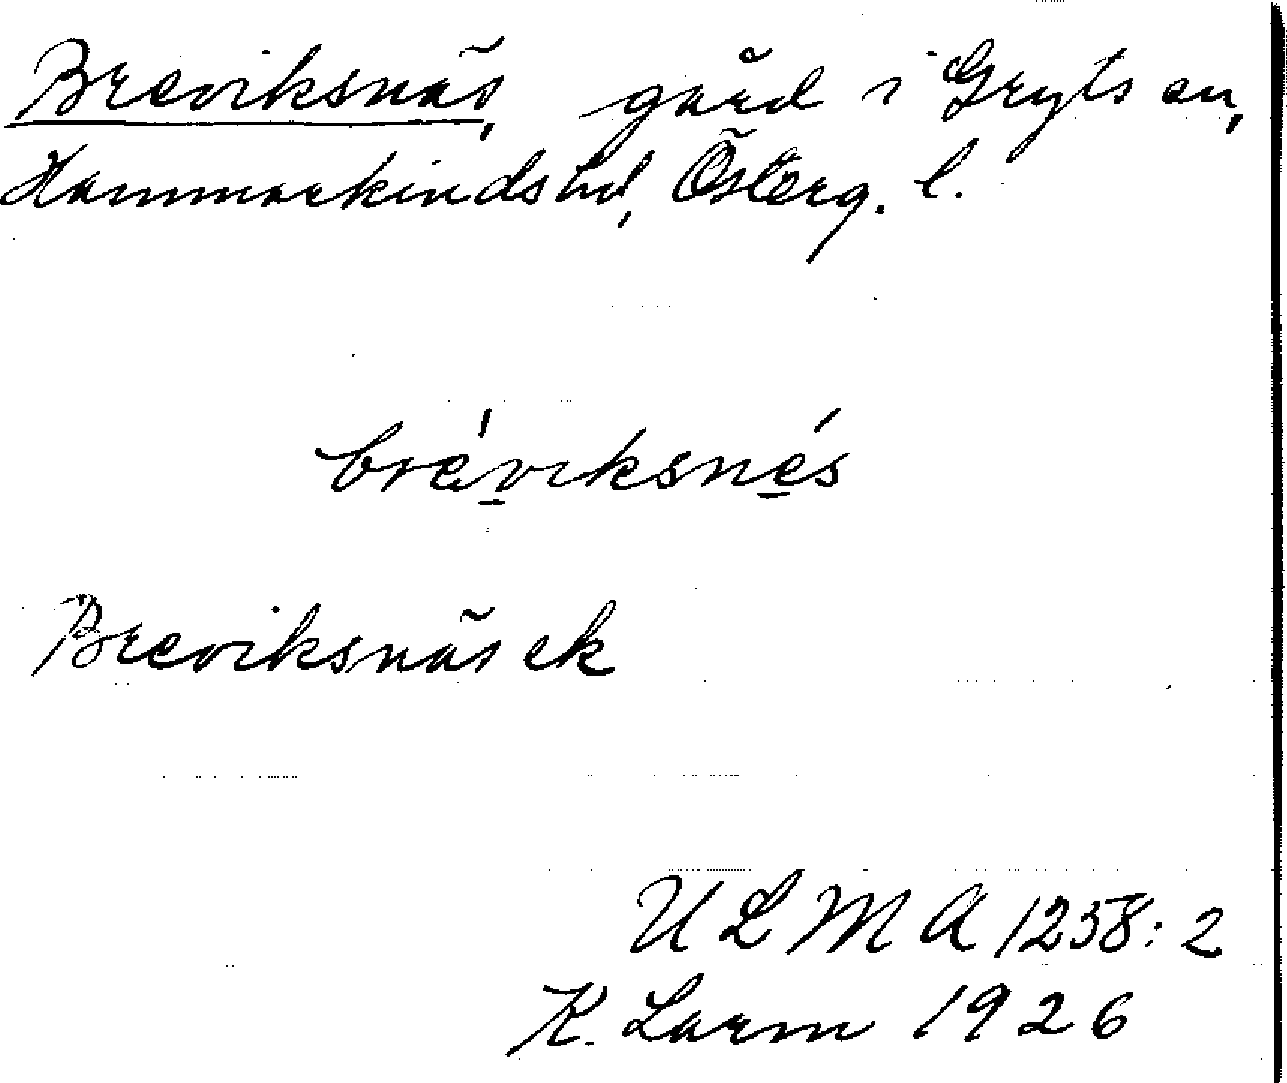 Breviksnäs, gård i Gryts sn,
Hammarkinds hd, Österg. l.
bréviksnés
Breviksnäs ek
ULMA 1258:2
K. Larm 1926